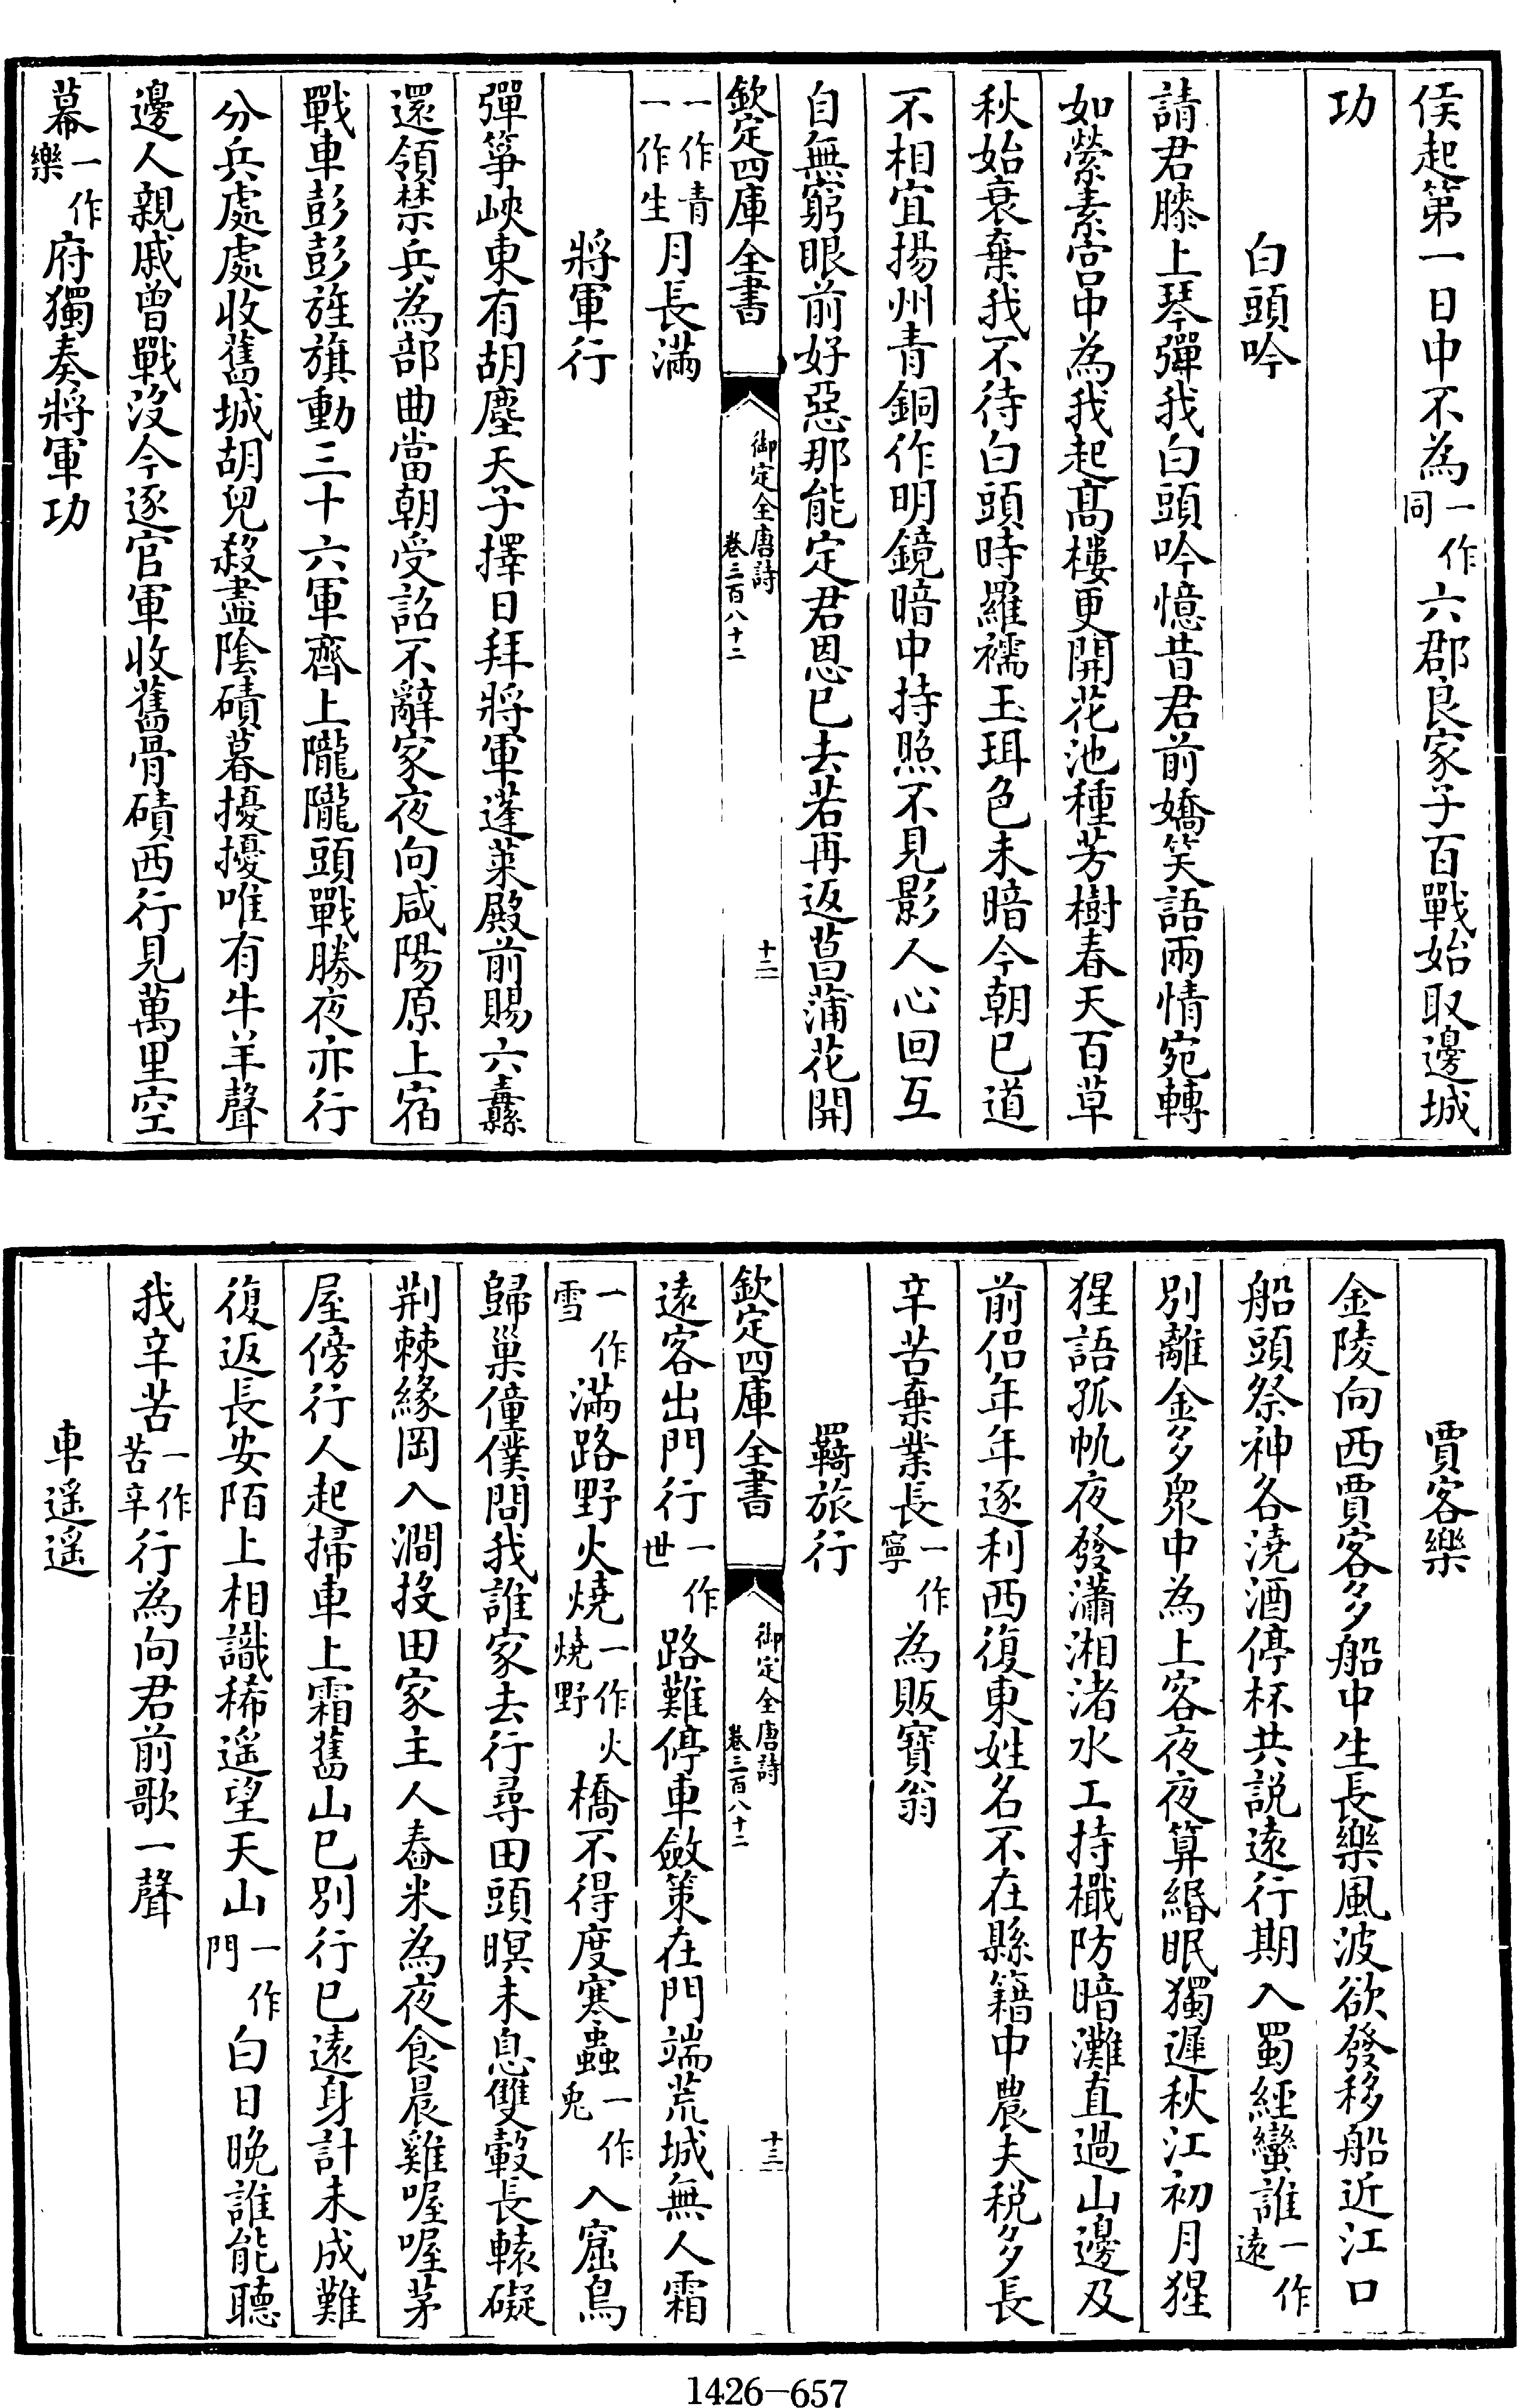 侯起第一日中不為一作同六郡良家子百戰始取邊城
功
白頭吟
請君膝上琴彈我白頭吟憶昔君前嬌笑語兩情宛轉
如縈素宮中為我起髙樓更開花池種芳樹春天百草
秋始衰棄我不待白頭時羅襦玉珥色未暗今朝已道
不相宜揚州青銅作明鏡暗中持照不見影人心回互
自無窮眼前好惡那能定君恩已去若再返菖蒲花開
欽定四庫全書
御定全唐詩
卷三百八十二
十二
一作青一作生月長滿
將軍行
彈箏峽東有胡塵天子擇日拜將軍蓬萊殿前賜六纛
還領禁兵為部曲當朝受詔不辭家夜向咸陽原上宿
戰車彭彭旌旗動三十六軍齊上隴隴頭戰勝夜亦行
分兵處處收舊城胡兒殺盡陰磧暮擾擾唯有牛羊聲
邊人親戚曾戰沒今逐官軍收舊骨磧西行見萬里空
幕一作樂府獨奏將軍功
賈客樂
金陵向西賈客多船中生長樂風波欲發移船近江口
船頭祭神各澆酒停杯共説遠行期入蜀經蠻誰一作遠
別離金多衆中為上客夜夜算緡眠獨遲秋江初月猩
猩語孤帆夜發瀟湘渚水工持檝防暗灘直過山邊及
前侶年年逐利西復東姓名不在縣籍中農夫税多長
辛苦棄業長一作寧為販寶翁
羇旅行
欽定四庫全書
御定全唐詩
卷三百八十二
十三
遠客出門行一作世路難停車斂策在門端荒城無人霜
一作雪滿路野火燒一作火燒野橋不得度寒蟲一作兎入窟鳥
歸巢僮僕問我誰家去行尋田頭暝未息雙轂長轅礙
荆棘緣岡入澗投田家主人舂米為夜食晨雞喔喔茅
屋傍行人起掃車上霜舊山已別行已遠身計未成難
復返長安陌上相識稀遥望天山一作門白日晚誰能聽
我辛苦一作苦辛行為向君前歌一聲
車遥遥
1426-657